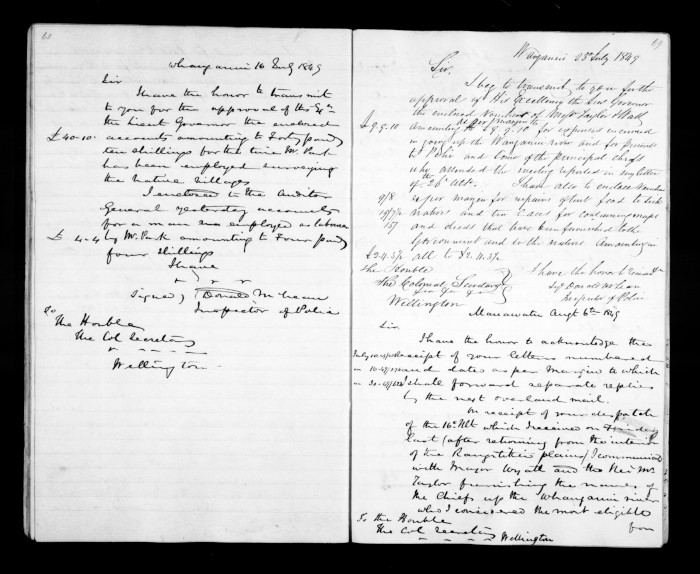 60
Whanganui 16 July 1849
Sir
I have the honor to transmit
to you for the approval of His Ex
the Lieut Governor the enclosed
£40-10- accounts amounting to Forty pounds
ten shillings for the time Mr Park
has been employed surveying
the native villages
I enclosed to the Auditor
General yesterday accounts
for a man employed as laborer
£ 4-4 by Mr Park amounting to Four pounds
four shillings
I have
Signed) Donald McLean
Inspector of Police
To
The Honble
The Col Secretary
Wellington
Wanganui 23 July 1849
Sir,
I beg to transmit to you for the
approval of His Excellency the Lieut Governor
the enclosed Vouchers of Taylor & Watt
as per margin for
£9.9.10 amounting to £8.9.10 for expenses incurred
in going up the Wanganui river and for presents
to and some of the principal chiefs
who attended the meeting reported in my letter
of the 26th Ulto. I have also to enclose Voucher
9/8 as per margin for repairs of tent
19/7½
15/ and deeds that have been furnished both
Government and to the natives amounting in
all to £2.4.3½
The Honble
The Colonial Secretary
Wellington
I have the honor to remain
Sg Donald McLean
Inspector of Police
Manawatu Augt 6th 1849
Sir
I have the honor to acknowledge the
receipt of your letters numbered
and dates as per margin to which
I shall forward separate replies
by the next overland mail.
On receipt of your despatch
of the 16th Ult which I received on
last (after returning from the interior
of the Rangitikei plains) I communicated
with Major Wyatt and the Rev Mr
Taylor furnishing the names of
the Chiefs up the Whanganui river
who I considered the most eligible
To the Honble
from
The Col Secretary
Wellington